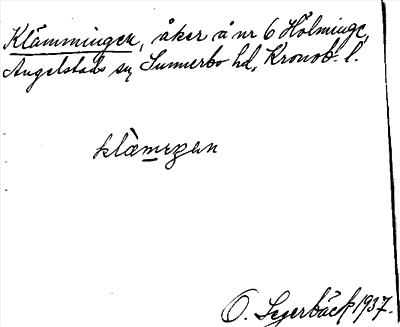 Klämmingen, åker å nr 6 Hölminge,
Angelstads sn, Sunnerbo hd, Kronob. l.
klämeŋen
O. Segerbäck 1937.